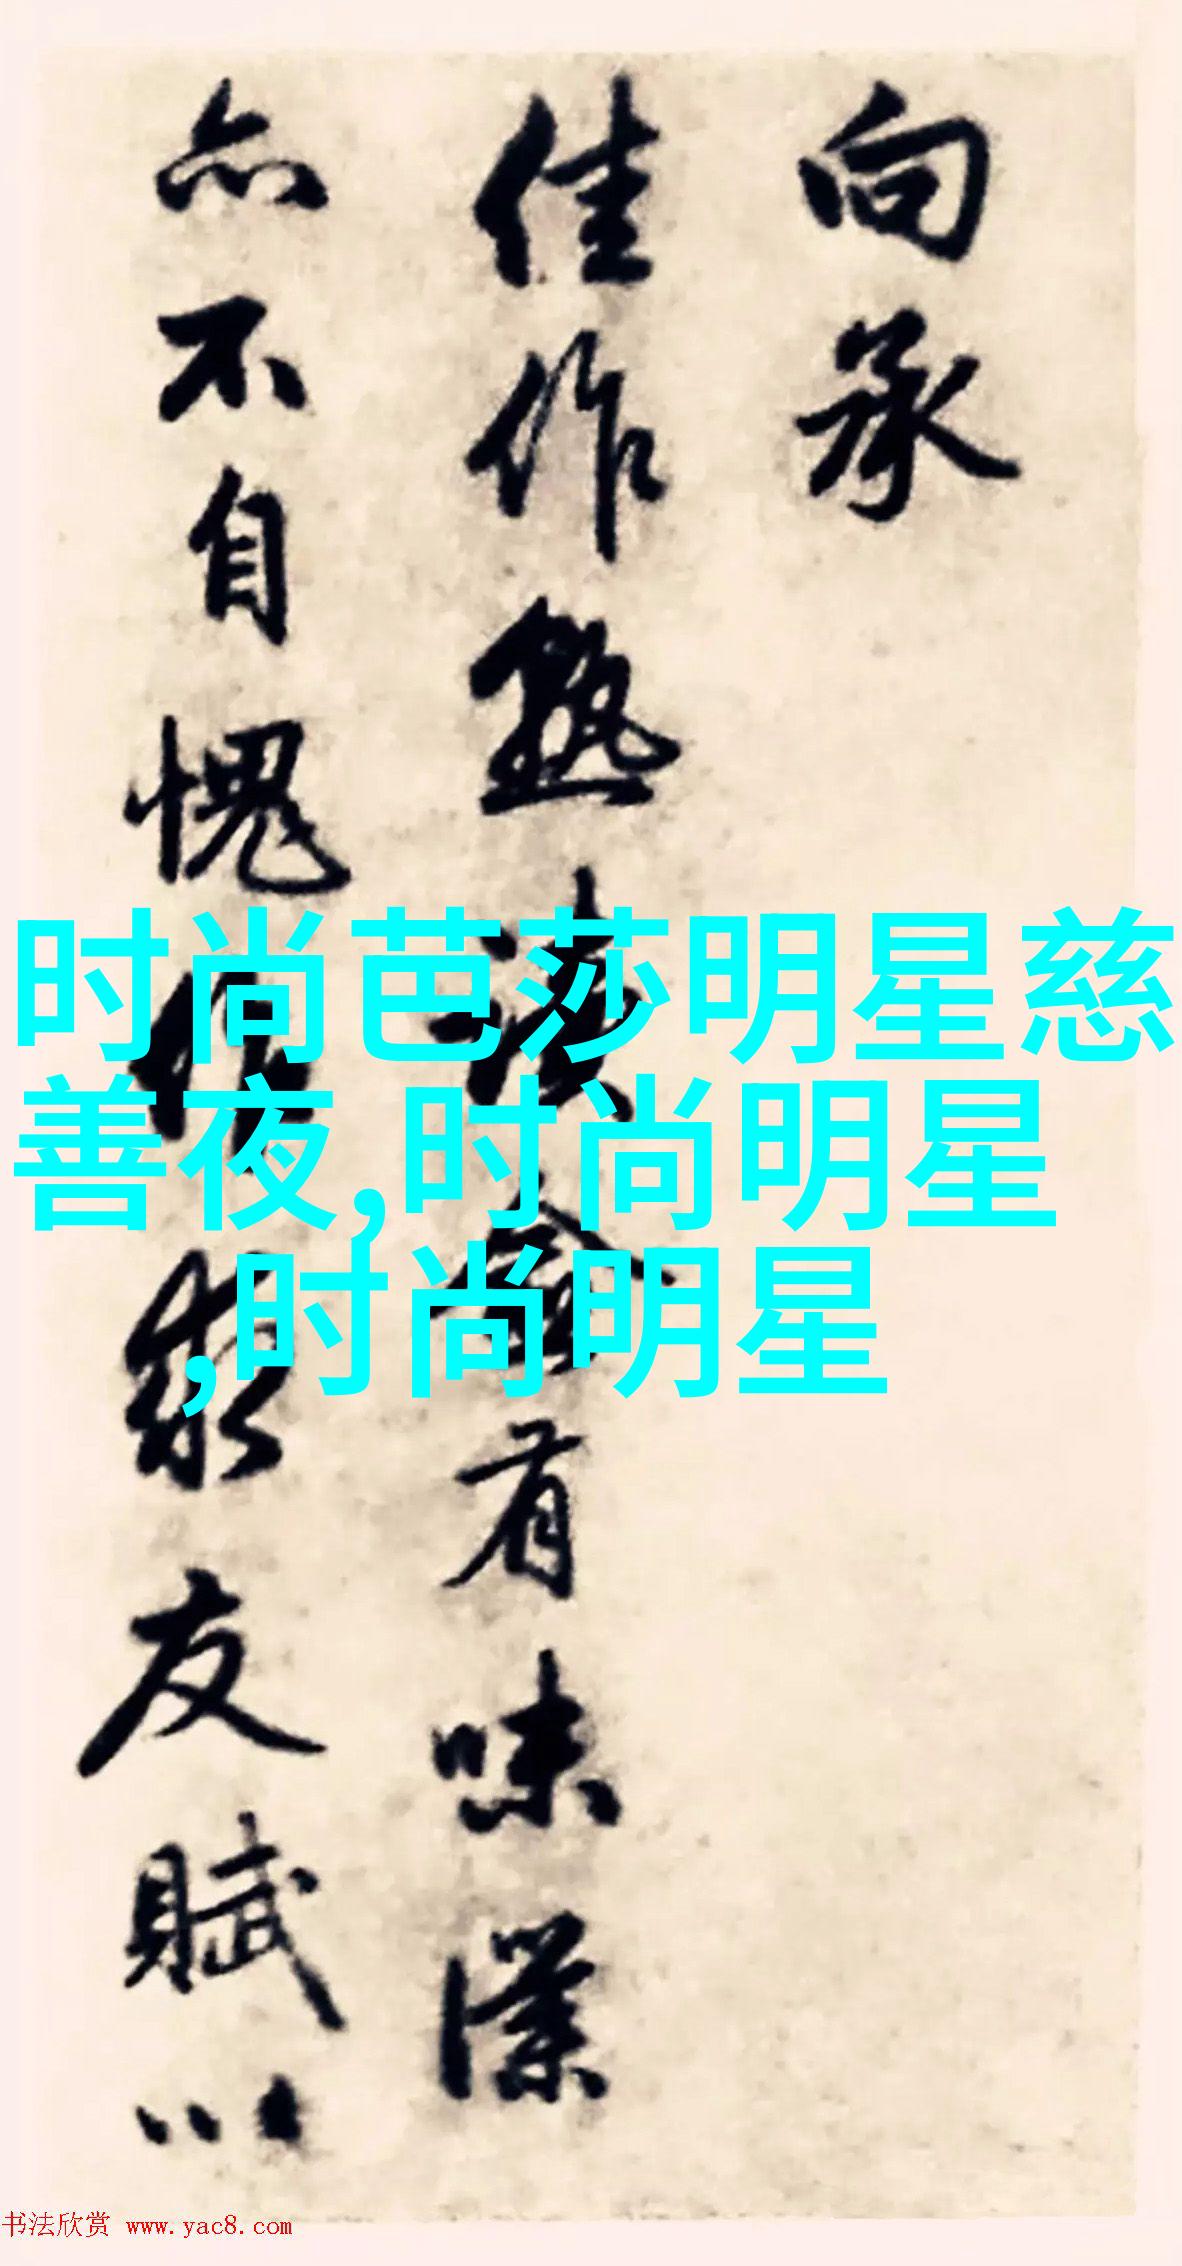 向承
佳作熟读金有味深
亦不自愧作报友赋以
时尚芭莎明星慈
善夜,时尚明星
,时尚明星
书法欣赏 www.yac8.com